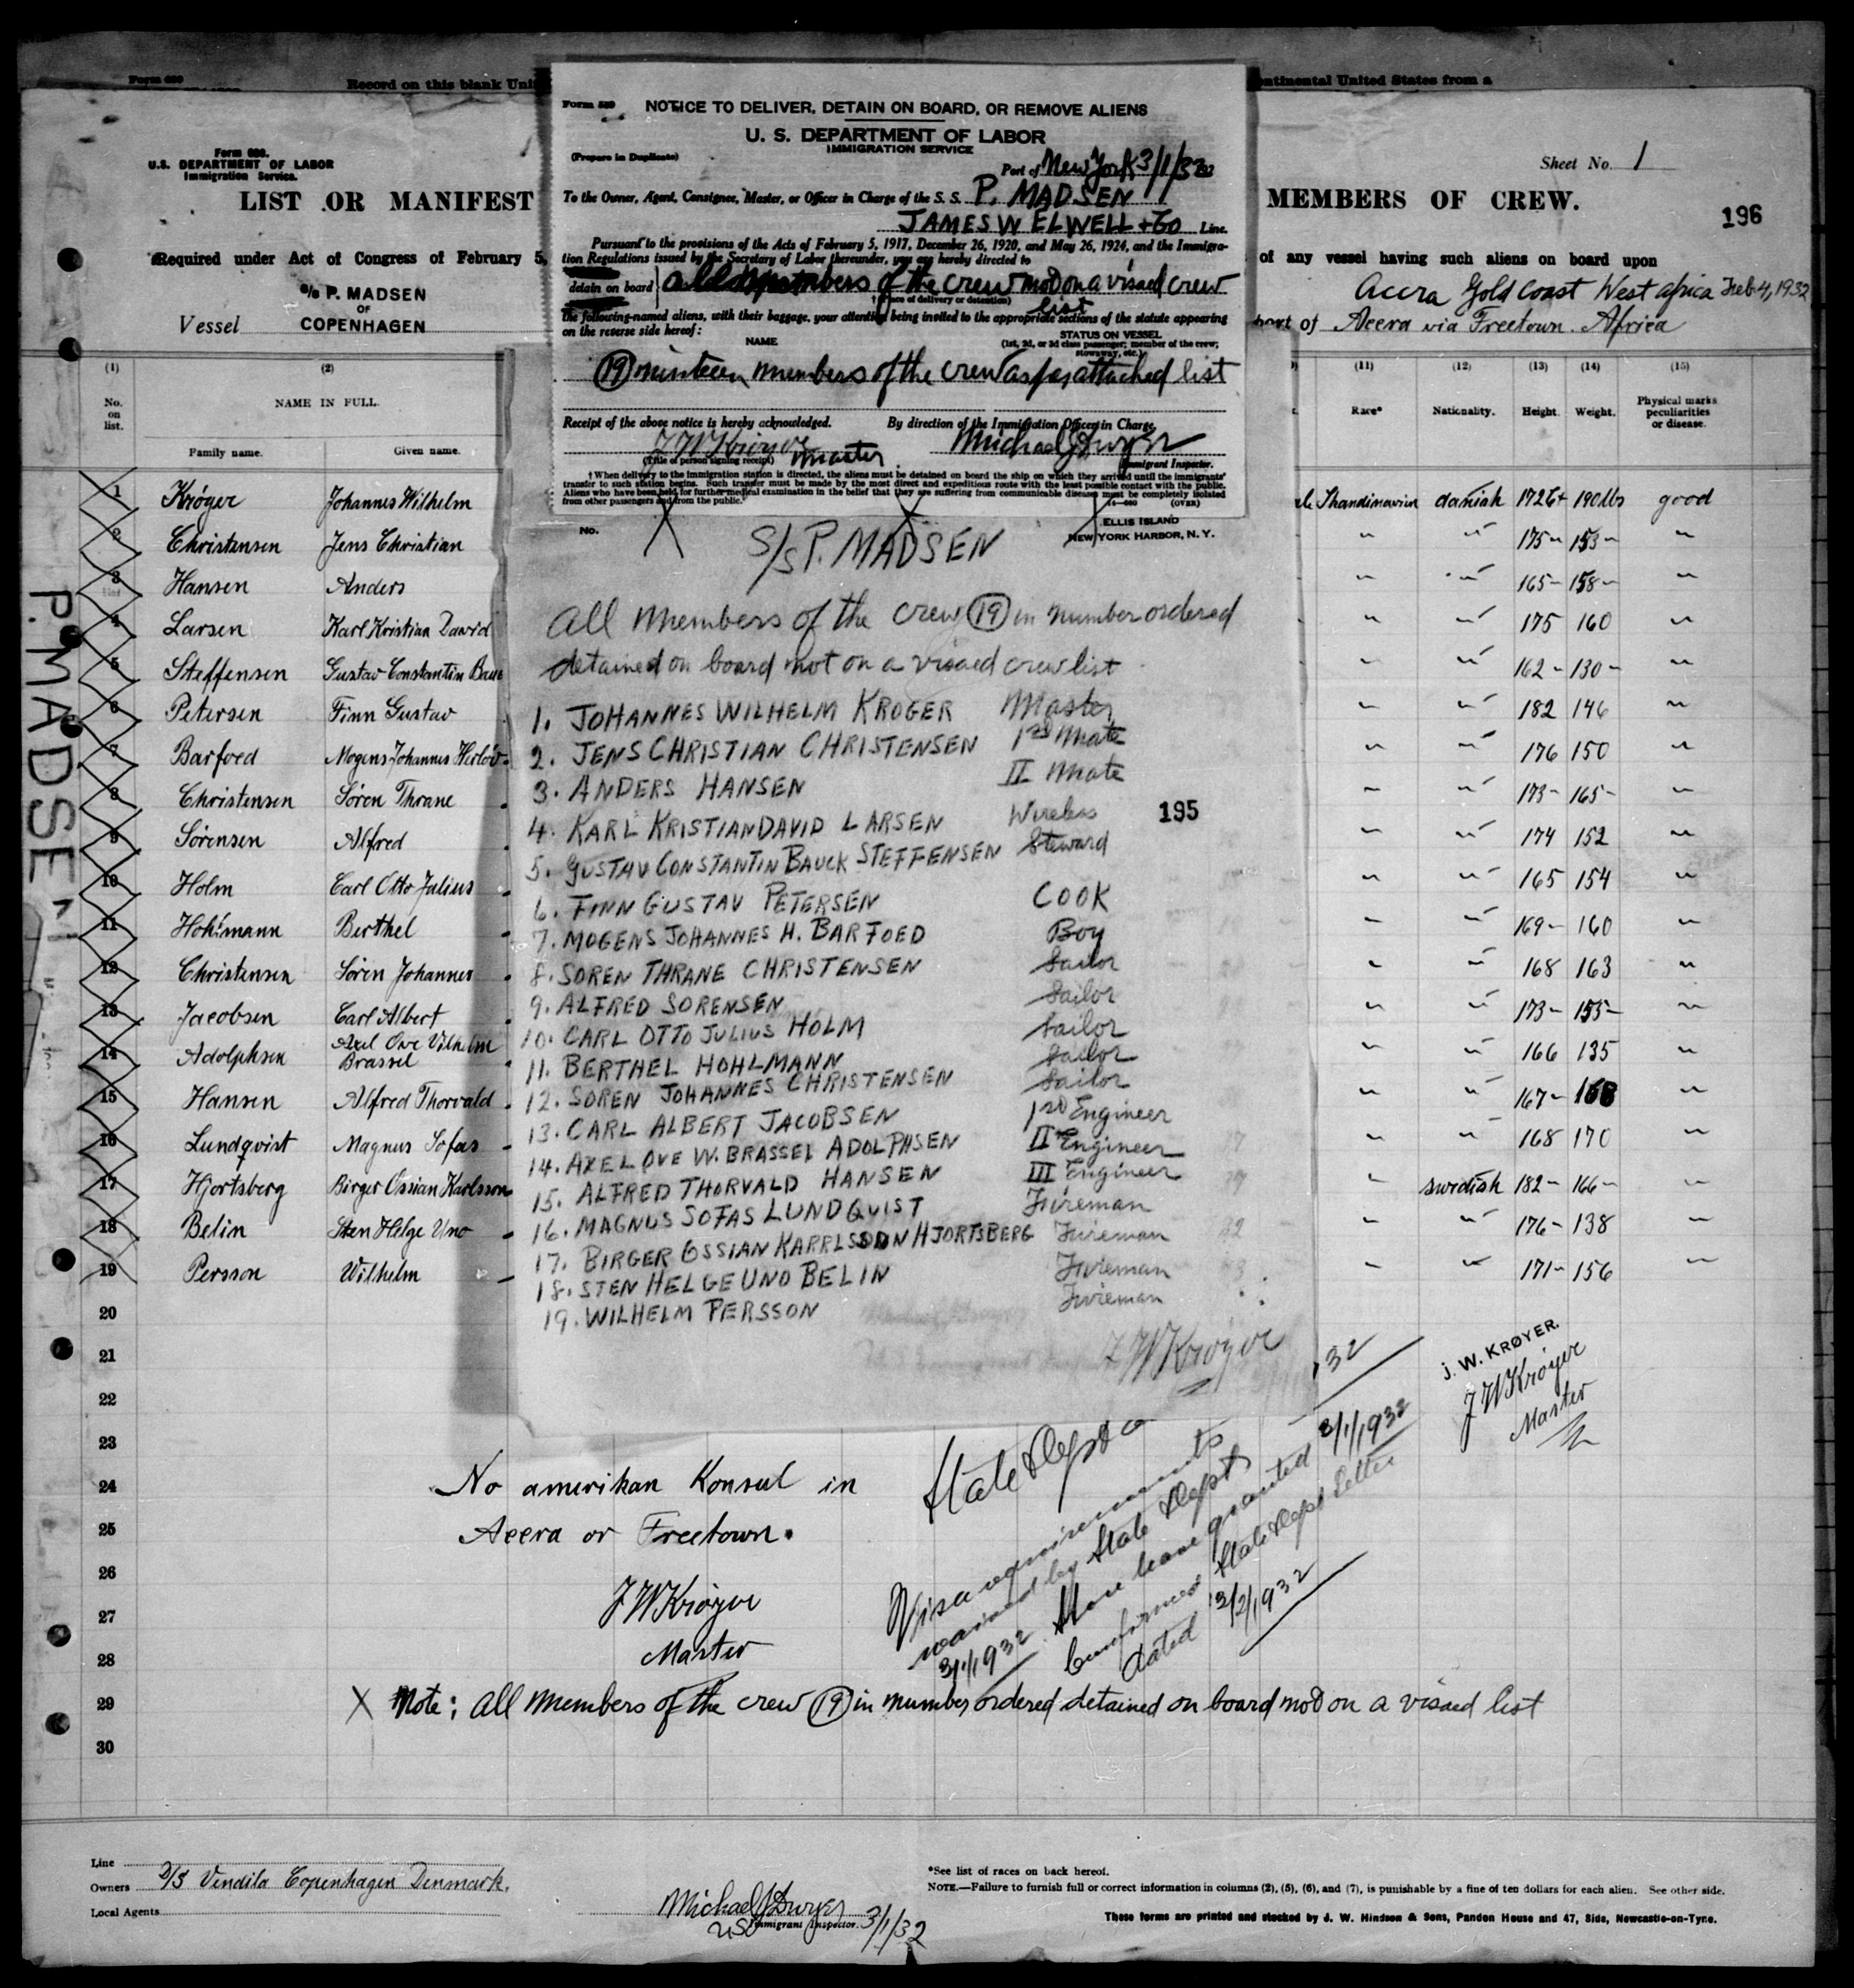 Form 689
Record on this blank Uni
ontinental United States from a
Form 689.
U.S. DEPARTMENT OF LABOR
Immigration Service.
LIST OR MANIFEST
MEMBERS OF CREW.
Sheet No. 1
196
Required under Act of Congress of February 5,
of any vessel having such aliens on board upon
Vessel
S/S P. MADSEN
OF
COPENHAGEN
Accra Gold Coast West Africa Feb 4, 1932
port of Accra via Freetown. Africa
Form 580
NOTICE TO DELIVER, DETAIN ON BOARD, OR REMOVE ALIENS
U. S. DEPARTMENT OF LABOR
IMMIGRATION SERVICE
(Prepare in Duplicate)
Port of New York 3/1/32
To the Owner, Agent, Consignee, Master, or Officer in Charge of the S. S. P. MADSEN
JAMES W ELWELL + Co Line.
Pursuant to the provisions of the Acts of February 5, 1917, December 26, 1920, and May 26, 1924, and the Immigra-
tion Regulations issued by the Secretary of Labor thereunder, you are hereby directed to
detain on board all members of the crew not on a visaed crew
list
(Place of delivery or detention)
the following-named aliens, with their baggage, your attention being invited to the appropriate sections of the statute appearing
on the reverse side hereof:
NAME
STATUS ON VESSEL
(1st, 2d, or 3d class passenger; member of the crew;
stowaway, etc.)
(19) nineteen members of the crew as per attached list
Receipt of the above notice is hereby acknowledged.
By direction of the Immigration Officer in Charge,
J W Krøyer master
Michael J Dwyer
(Title of person signing receipt)
Immigrant Inspector.
† When delivery to the immigration station is directed, the aliens must be detained on board the ship on which they arrived until the immigrants'
transfer to such station begins. Such transfer must be made by the most direct and expeditious route with the least possible contact with the public.
Aliens who have been held for further medical examination in the belief that they are suffering from communicable diseases must be completely isolated
from other passengers and from the public.
(OVER)
No.
ELLIS ISLAND
NEW YORK HARBOR, N. Y.
S/S P. MADSEN
All members of the crew (19) in number ordered
detained on board not on a visaed crew list
1. JOHANNES WILHELM KROGER Master
2. JENS CHRISTIAN CHRISTENSEN 1st Mate
3. ANDERS HANSEN II Mate
4. KARL KRISTIAN DAVID LARSEN Wireless
195
5. GUSTAV CONSTANTIN BAUCK STEFFENSEN Steward
6. FINN GUSTAV PETERSEN COOK
7. MOGENS JOHANNES H. BARFOED Boy
8. SOREN THRANE CHRISTENSEN Sailor
9. ALFRED SORENSEN Sailor
10. CARL OTTO JULIUS HOLM Sailor
11. BERTHEL HOHLMANN Sailor
12. SOREN JOHANNES CHRISTENSEN Sailor
13. CARL ALBERT JACOBSEN 1st Engineer
14. AXEL OVE W. BRASSEL ADOLPHSEN II Engineer
15. ALFRED THORVALD HANSEN III Engineer
16. MAGNUS SOFAS LUNDQUIST Fireman
17. BIRGER OSSIAN KARRLSSON HJORTSBERG Fireman
18. STEN HELGE UNO BELIN Fireman
19. WILHELM PERSSON Fireman
J W Krøyer
P. MADSEN
(1) (2) (11) (12) (13) (14) (15)
No. on list.
NAME IN FULL.
Family name. Given name.
Race* Nationality. Height. Weight. Physical marks peculiarities or disease.
1 Krøyer Johannes Wilhelm Skandinavien danish 172 190 lbs good
2 Christensen Jens Christian " " 175 153 "
3 Hansen Anders " " 165 158 "
4 Larsen Karl Kristian David " " 175 160 "
5 Steffensen Gustav Constantin " " 162 130 "
6 Petersen Finn Gustav " " 182 146 "
7 Barfoed Mogens Johannes Herlöv " " 176 150
8 Christensen Sören Thrane " " 173 165 "
9 Sörensen Alfred " " 174 152 "
10 Holm Carl Otto Julius " " 165 154 "
11 Hohlmann Berthel " " 169 160 "
12 Christensen Sören Johannes " " 168 163 "
13 Jacobsen Carl Albert " " 173 155 "
14 Adolphsen Axel Ove Vilhelm Brassel " " 166 135 "
15 Hansen Alfred Thorvald " " 167 "
16 Lundqvist Magnus Sofas " " 168 170 "
17 Hjortsberg Birger Ossian Karlsson " swedish 182 166 "
18 Belin Sten Helge Uno " " 176 138 "
19 Persson Wilhelm " " 171 156 "
20
21
22
23
24
25
26
27
28
29
30
32
J. W. KRØYER.
J W Krøyer
Master
No amerikan Konsul in
Accra or Freetown.
J W Krøyer
Master
State Dept
Visa requirements
waived by State Dept
3/1/1932 Shore leave granted 3/1/1932
Confirmed State Dept Letter
dated 3/2/1932
X Note: All members of the crew (19) in number ordered detained on board not on a visaed list
Line
Owners D/S Vendila Copenhagen Denmark.
Local Agents
Michael J Dwyer
US Immigrant Inspector. 3/1/32
*See list of races on back hereof.
NOTE.—Failure to furnish full or correct information in columns (2), (5), (6), and (7), is punishable by a fine of ten dollars for each alien. See other side.
These forms are printed and stocked by J. W. Hindson & Sons, Pandon House and 47, Side, Newcastle-on-Tyne.